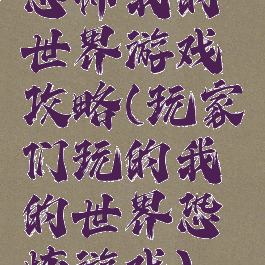 恐怖我的
世界游戏
攻略(玩家
们玩的我
的世界恐
怖游戏)